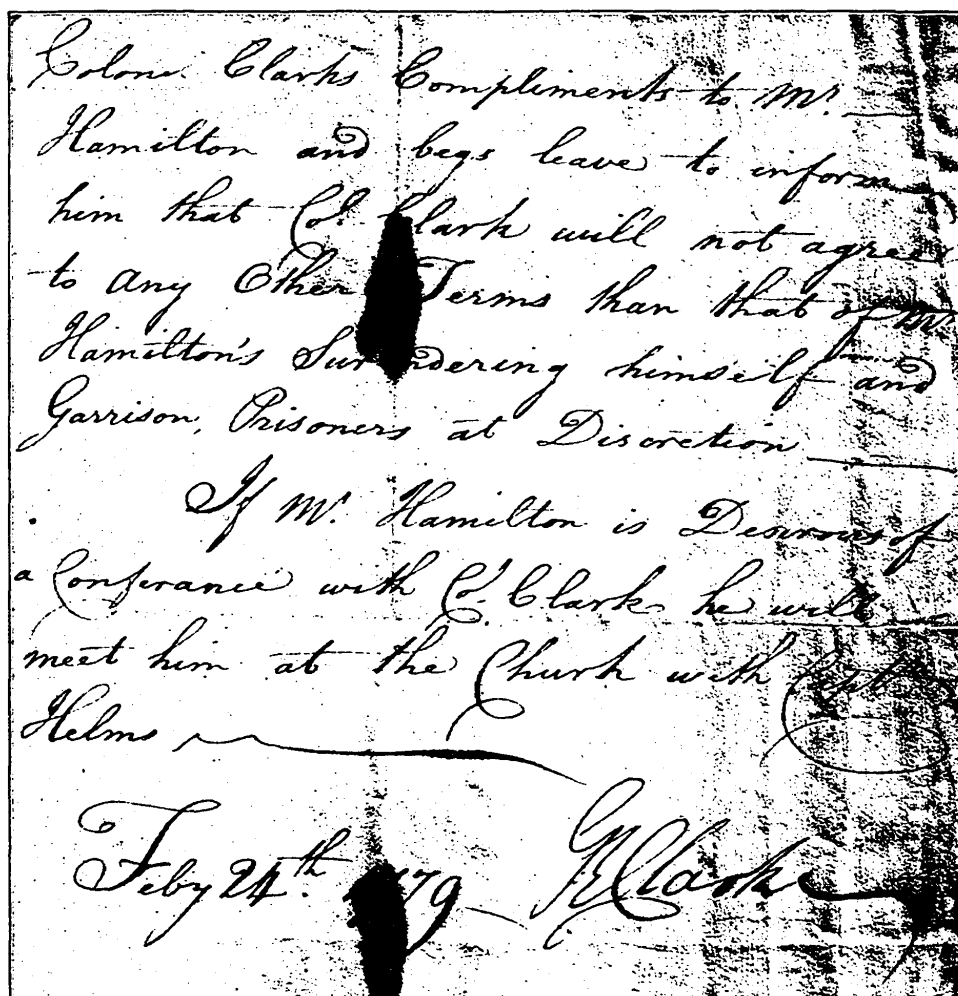 Colonel Clarks Compliments to Mr.
Hamilton and begs leave to inform
him that Col. Clark will not agree
to any Other Terms than that of Mr
Hamilton's Surrendering himself and
Garrison, Prisoners at Discretion
If Mr. Hamilton is Desirous of
a Conferance with Col. Clark he will
meet him at the Church with Capt
Helms
Feby 24th. 1779 G R Clark